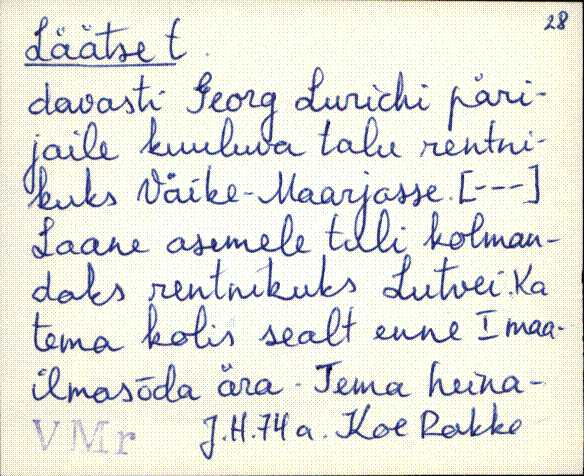 28
Läätse t.
davasti Georg Lurichi päri-
jaile kuuluva talu rentni-
kuks Väike-Maarjasse. [---]
Laane asemele tuli kolman-
daks rentnikuks Lutvei. Ka
tema kolis sealt enne I maa-
ilmasõda ära. Tema heina-
VMr J.H. 74 a. Koe Rakke